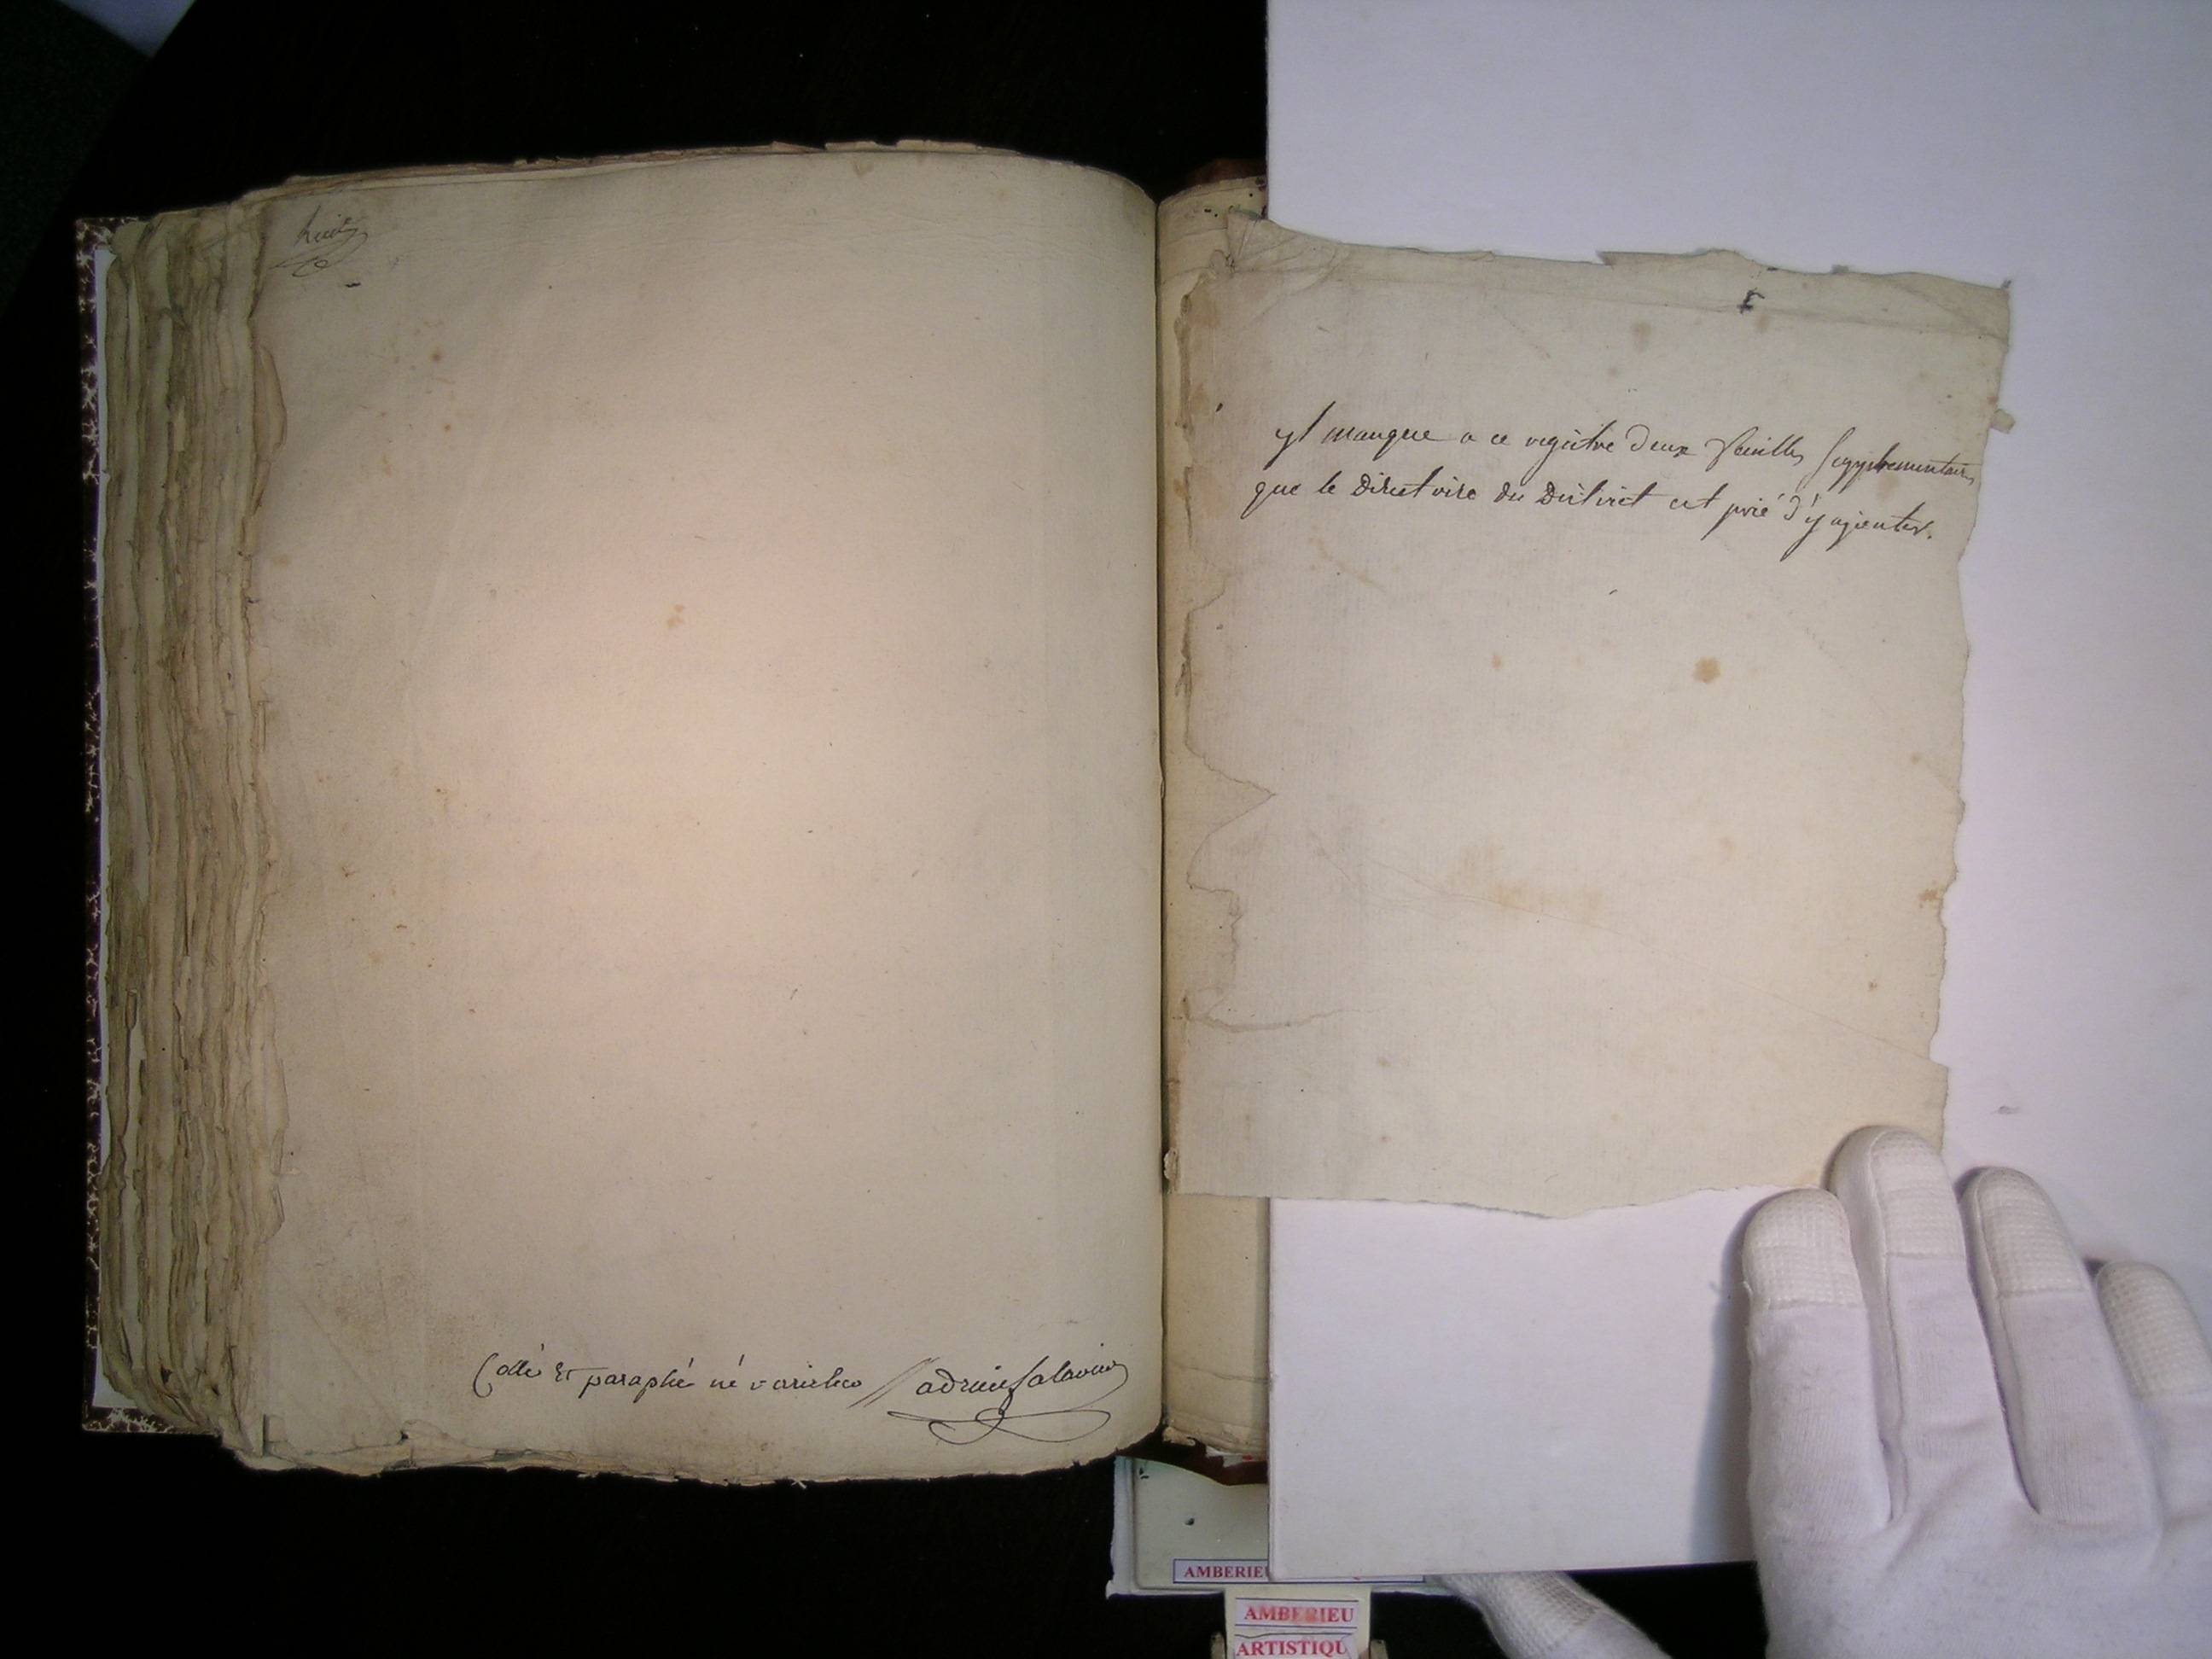 huit
Collé Et paraphé né varietur
yl manque a ce registre deux feuilles supplementaires
que le Directoire du District est prié d'y ajouter.
AMBERIEU
AMBERIEU
ARTISTIQU